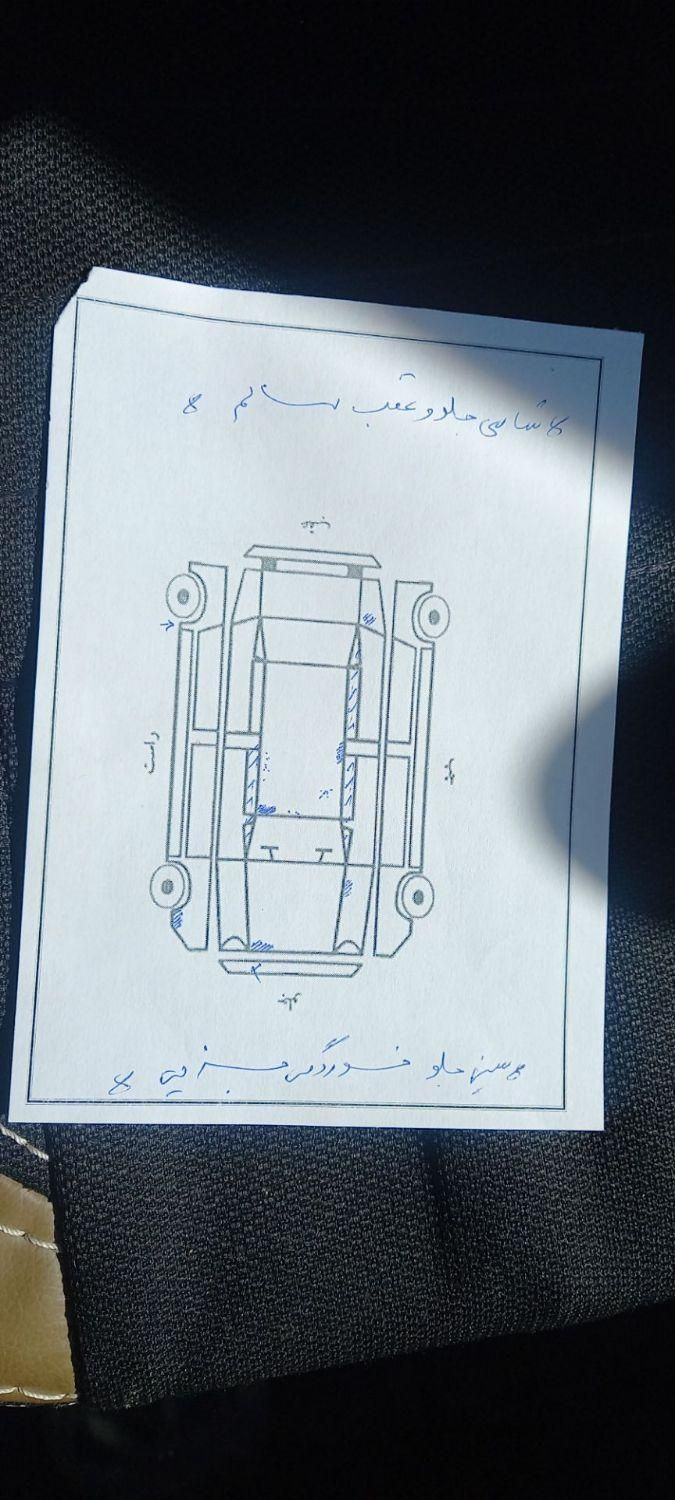 * شاسی جلو و عقب سالم *
عقب
راست
چپ
جلو
* سینی جلو خوردگی جزئی *